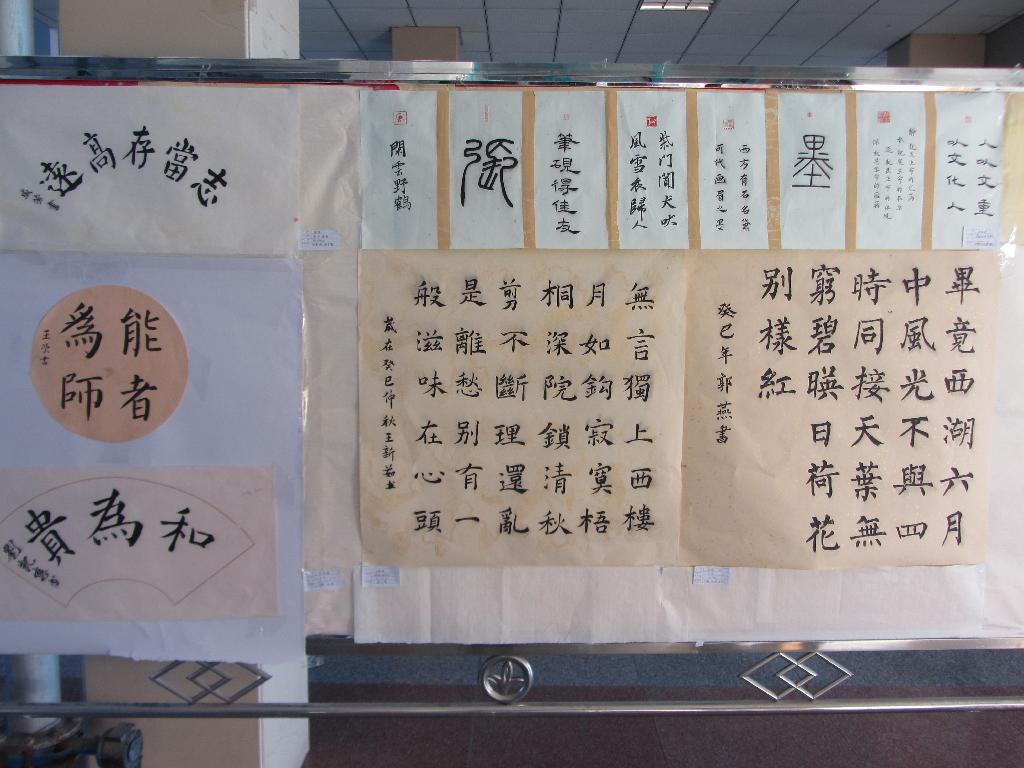 志當存高遠
能者
為師
王榮書
和為貴
人以文重
以文化人
墨
西方有石名黛
可代画眉之墨
柴门闻犬吠
風雪夜歸人
筆硯得佳友
閑雲野鶴
畢竟西湖六月
中風光不與四
時同接天葉無
窮碧暎日荷花
别樣紅
癸巳年郭燕書
無言獨上西樓
月如鈎寂寞梧
桐深院鎖清秋
剪不斷理還亂
是離愁别有一
般滋味在心頭
歲在癸巳仲秋王新茹書